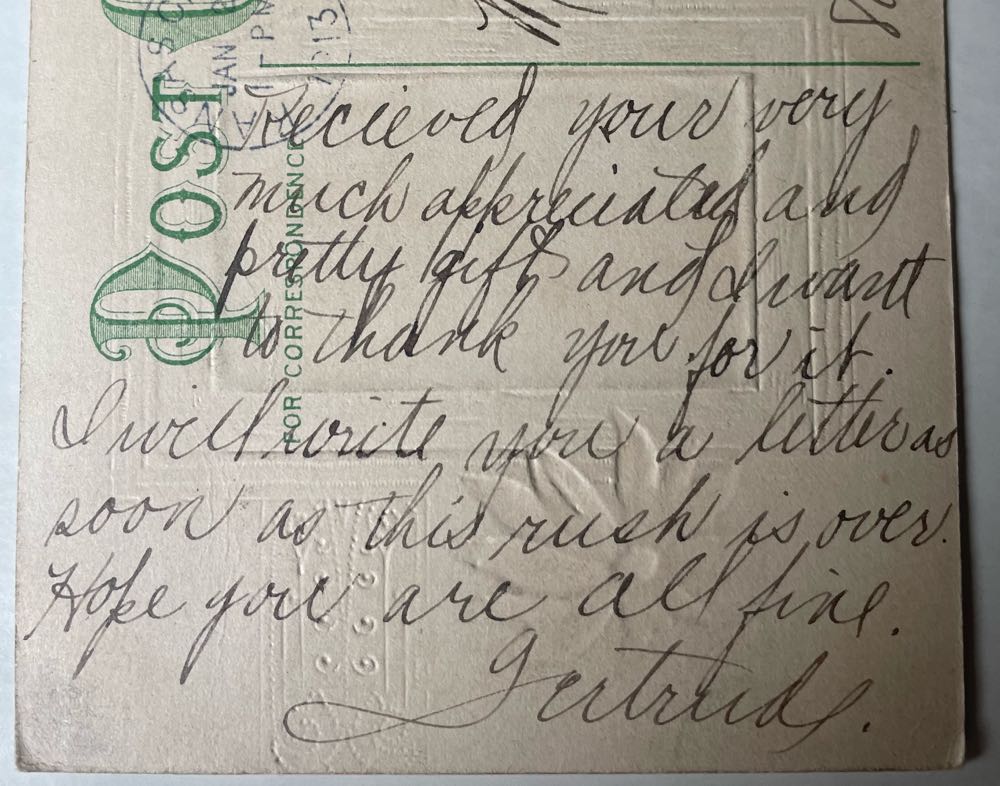 POST
FOR CORRESPONDENCE
JAN
1913
Recieved your very
much appreciated and
pretty gift and I want
to thank you for it.
I will write you a letter as
soon as this rush is over.
Hope you are all fine.
Gertrude.